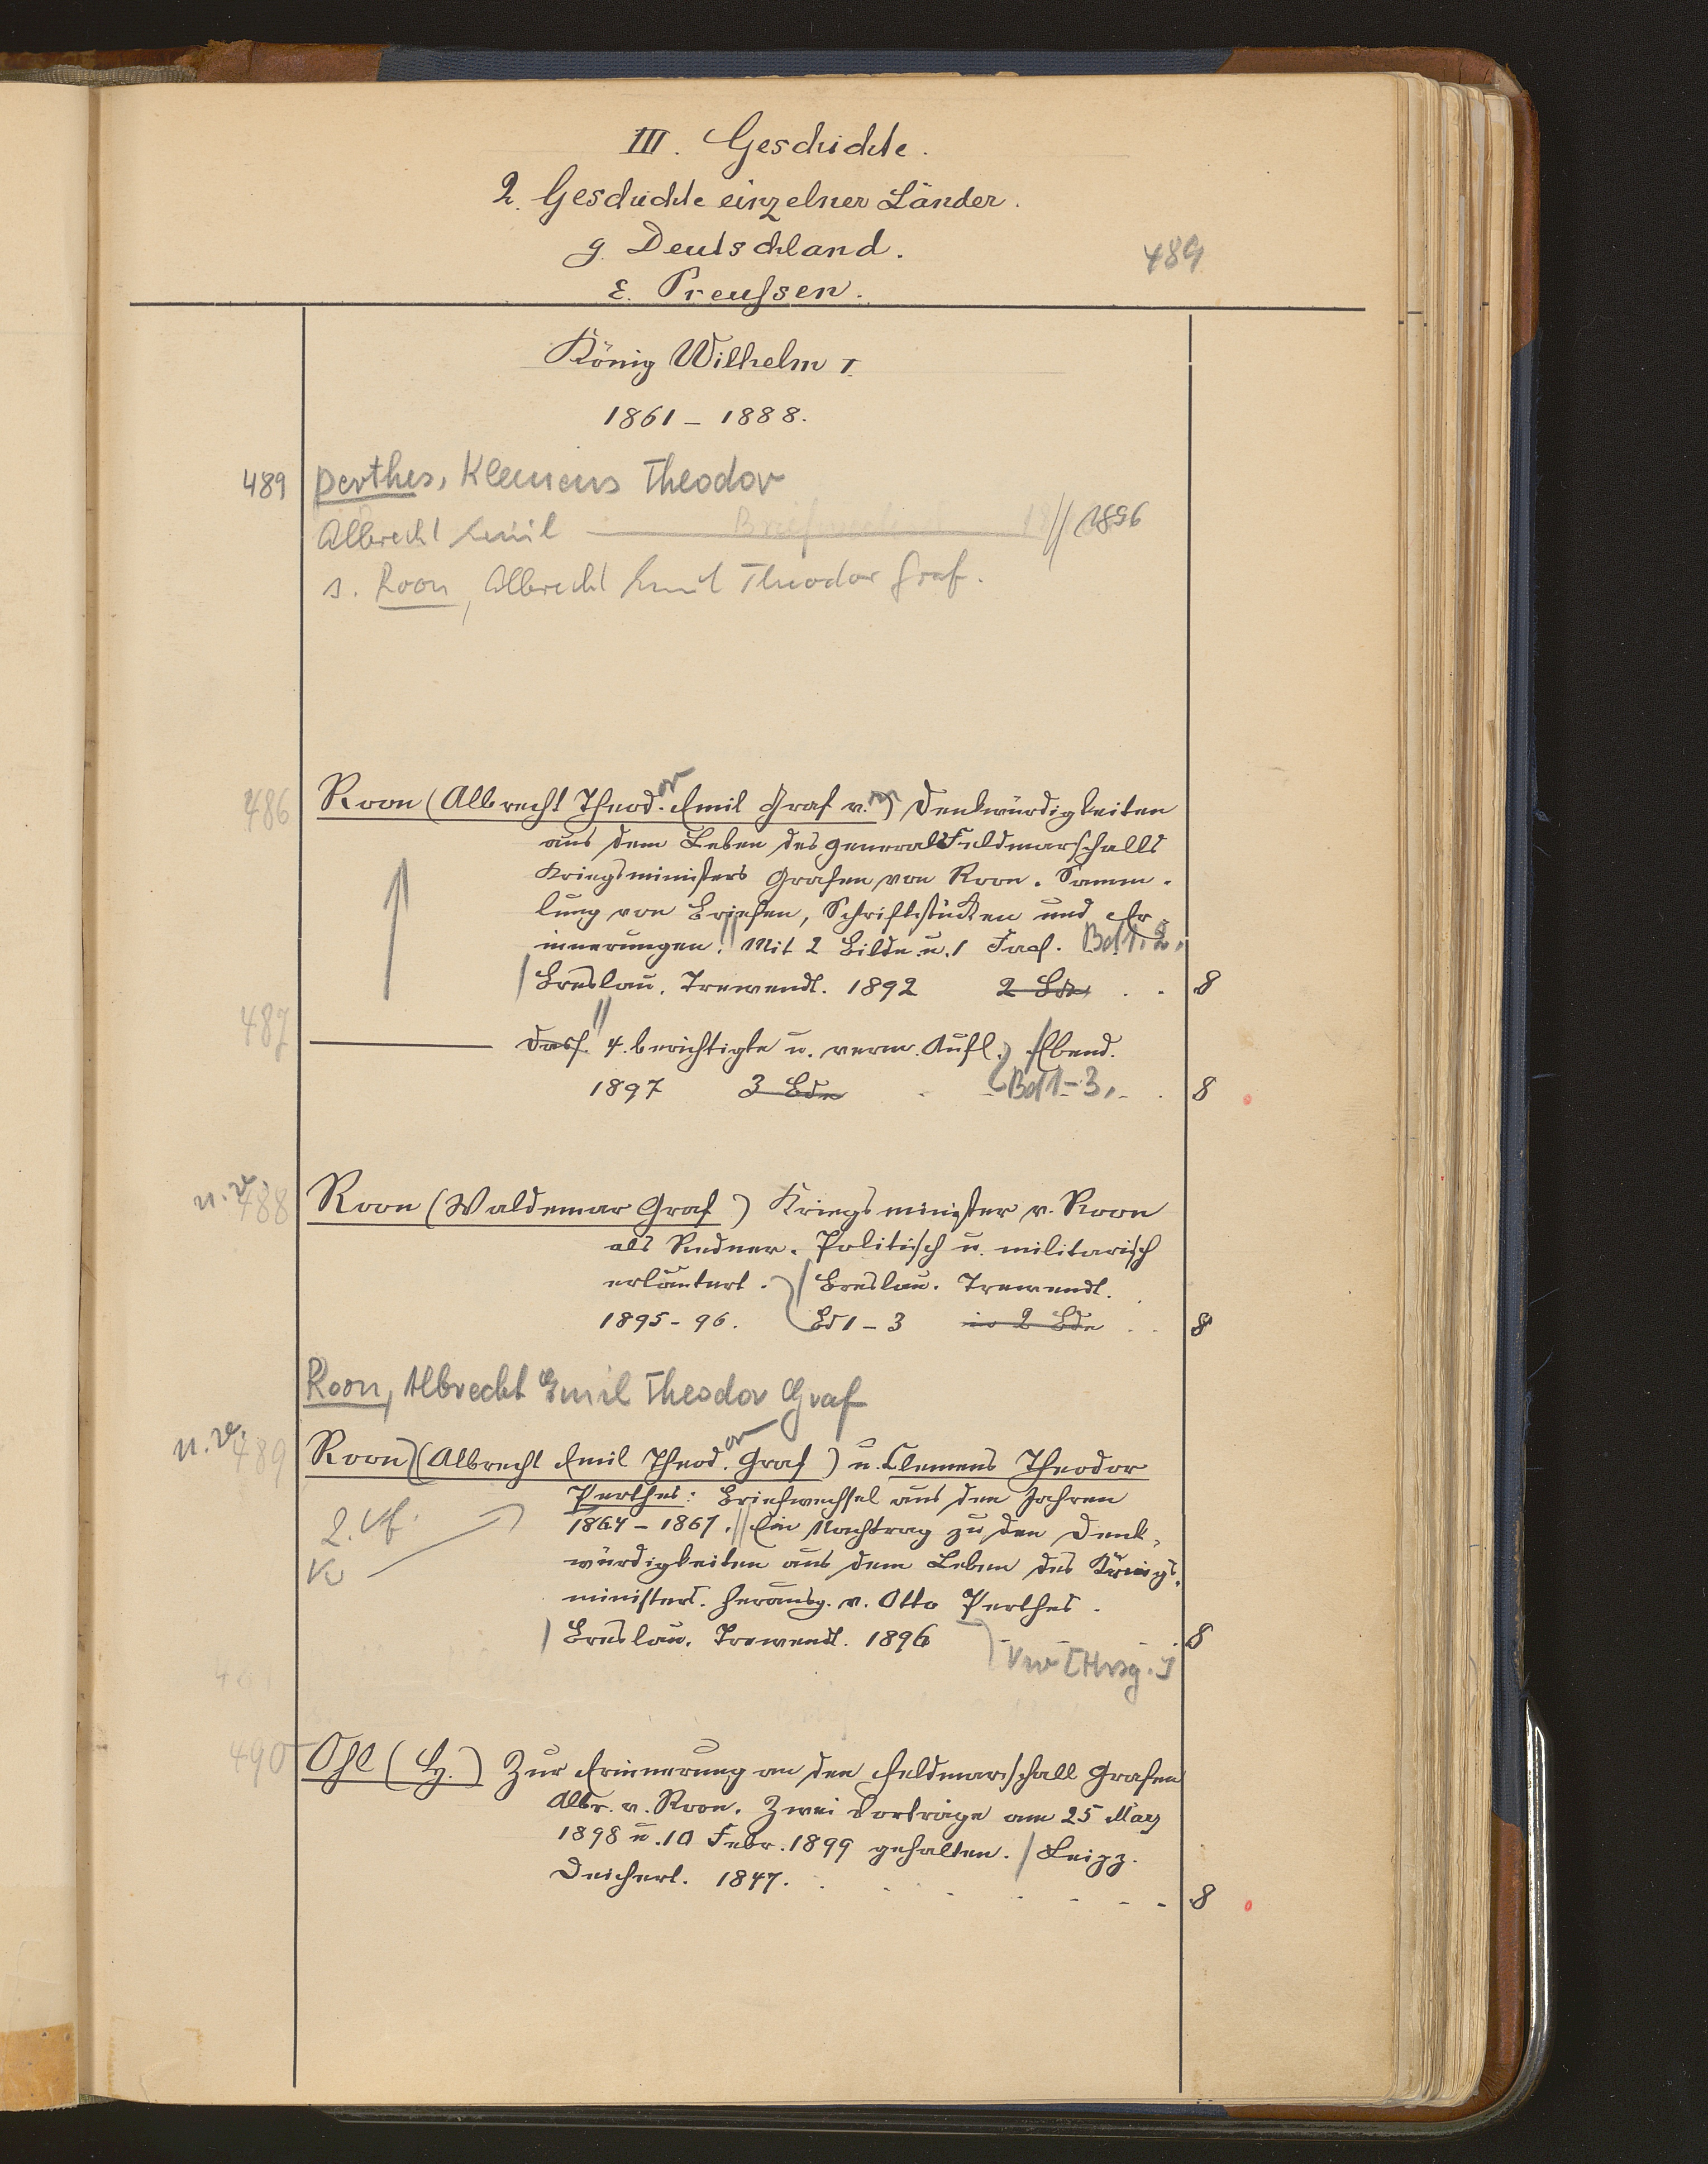 III. Geschichte.
2. Geschichte einzelner Länder.
g. Deutschland.
489
ε. Preussen.
König Wilhelm I.
1861 – 1888.
489 Perthes, Klemens Theodor
Albrecht Emil Briefwechsel 18 // 1896
s. Roon, Albrecht Emil Theodor Graf.
486 Roon (Albrecht Theod.or Emil Graf v.on) Denkwürdigkeiten
aus dem Leben des Generalfeldmarschalls
Kriegsministers Grafen von Roon. Samm-
lung von Briefen, Schriftstücken und Er-
innerungen. // Mit 2 Bildn. u. 1 Facs. Bd 1. 2.
/ Breslau. Trewendt. 1892 2 Bde 8
487 Dass. // 4. berichtigte u. verm. Aufl. / Ebend.
1897 3 Bde Bd 1–3. 8
n. v. 488 Roon (Waldemar Graf) Kriegsminister v. Roon
als Redner. Politisch u. militarisch
erläutert. / Breslau. Trewendt.
1895–96. Bd 1–3 in 2 Bde 8
Roon, Albrecht Emil Theodor Graf
n. v. 489 Roon (Albrecht Emil Theod.or Graf) u. Clemens Theodor
Perthes: Briefwechsel aus den Jahren
1864–1867. // Ein Nachtrag zu den Denk-
würdigkeiten aus dem Leben des Kriegs-
ministers. Herausg. v. Otto Perthes.
/ Breslau. Trewendt. 1896 8
Vw [Hrsg.]
490 Ohl (H.) Zur Erinnerung an den Feldmarschall Grafen
Albr. v. Roon. Zwei Vorträge am 25 März
1898 u. 10 Febr. 1899 gehalten. / Leipz.
Deichert. 1847. 8